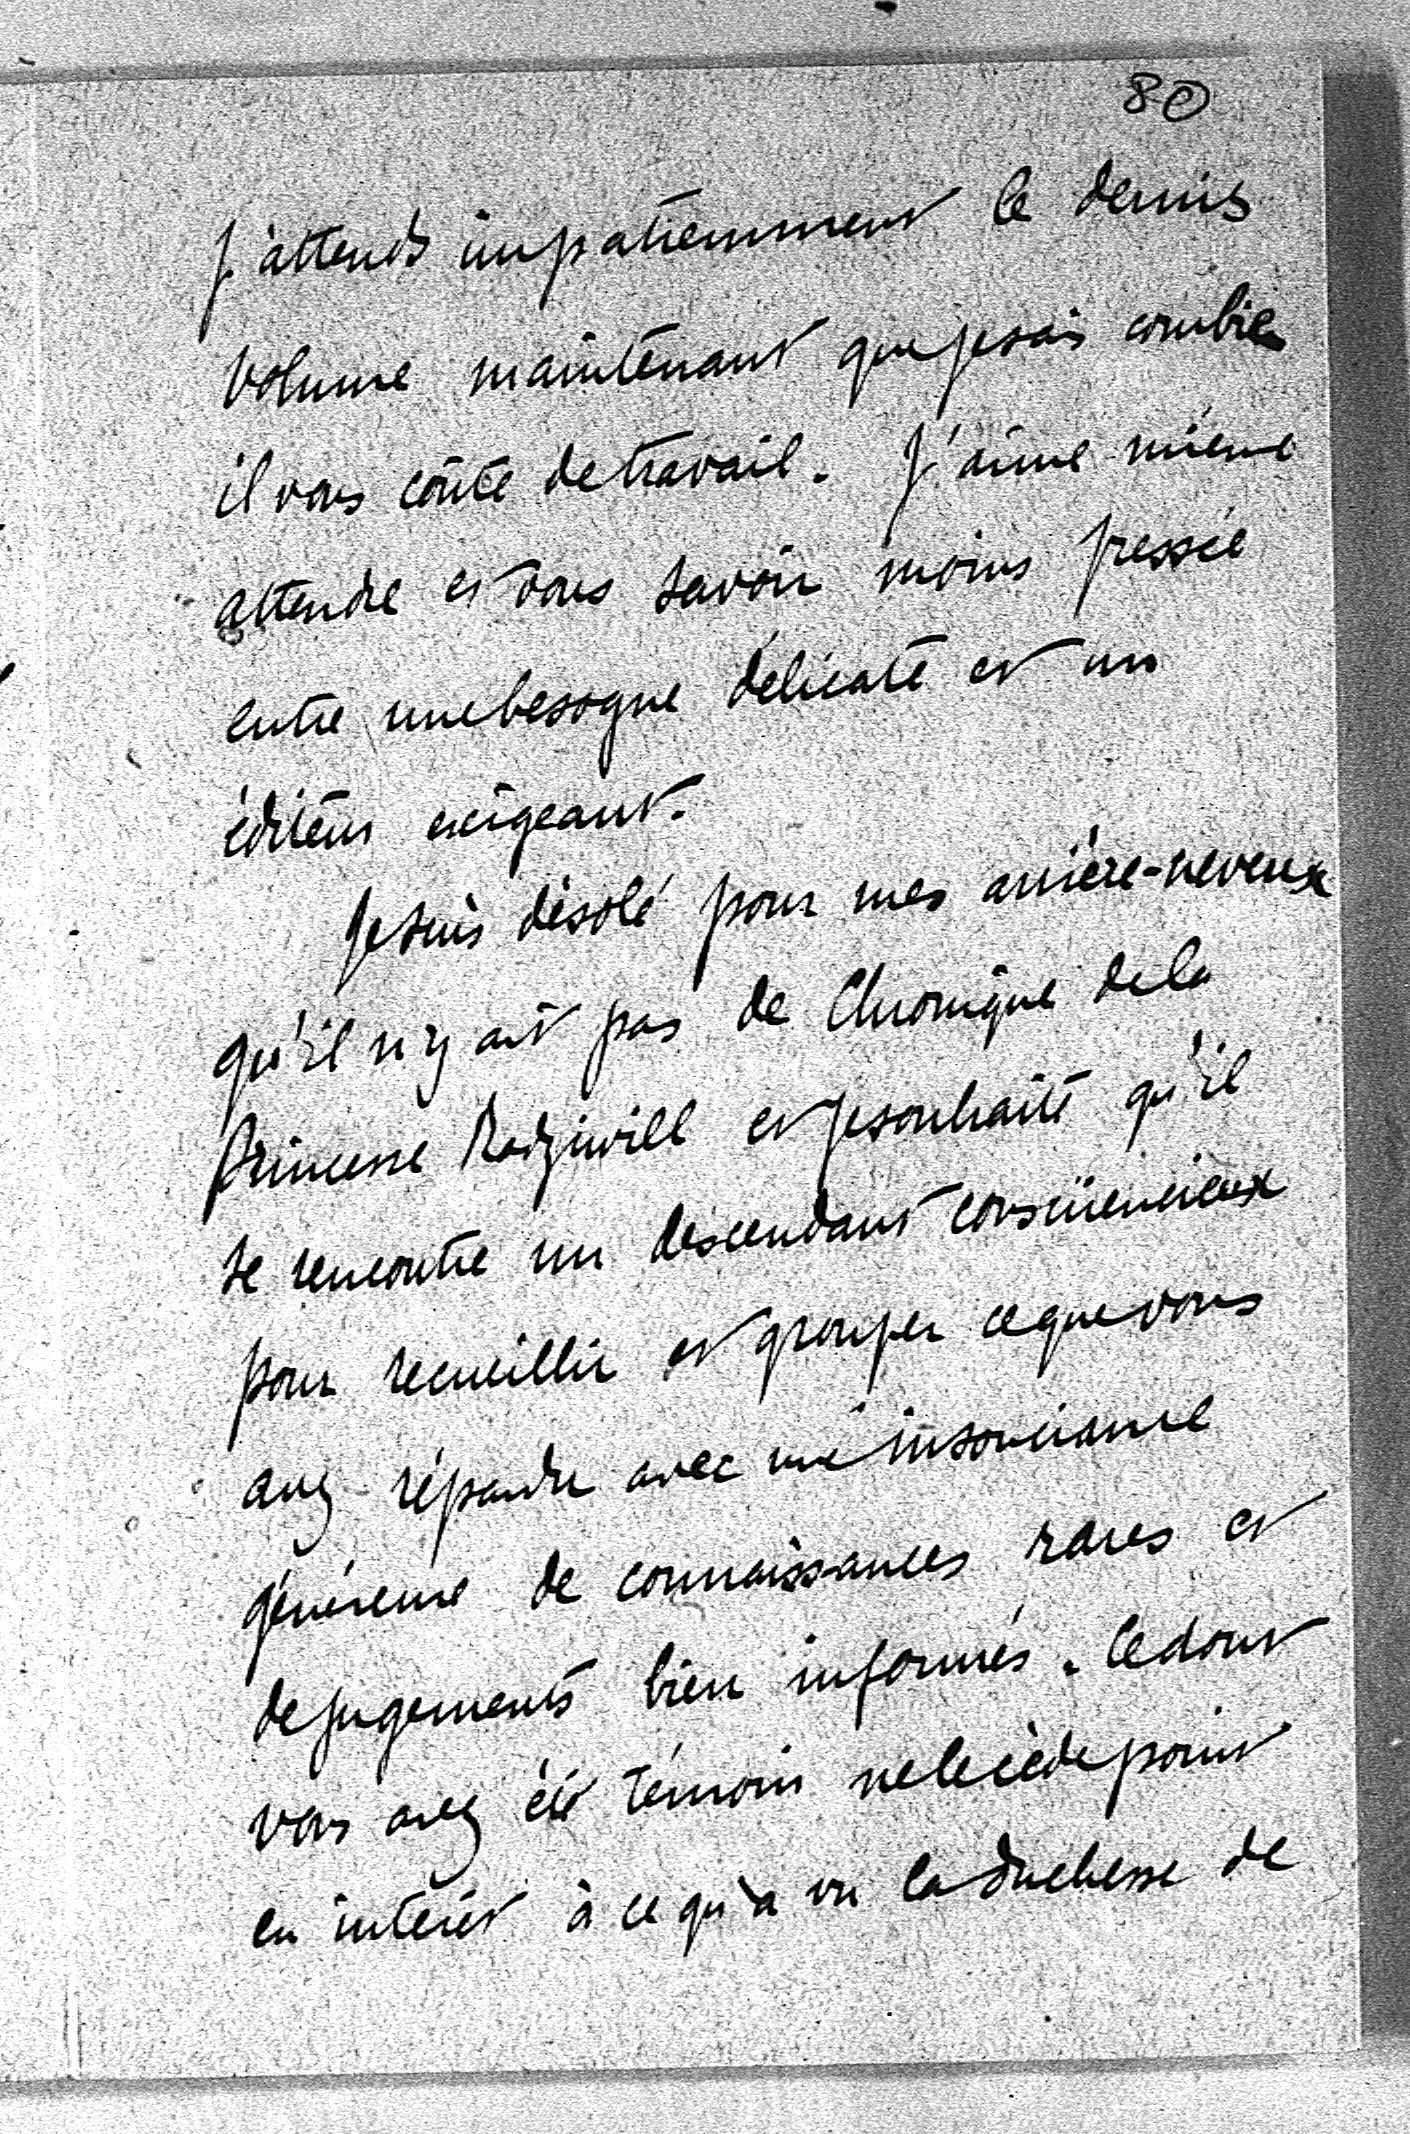 80
J'attends impatiemment le dernier
volume maintenant que je sais combien
il vous coûte de travail. J'aime mieux
attendre et vous savoir moins pressée
entre une besogne délicate et un
éditeur exigeant.
Je suis désolé pour mes arrière-neveux
qu'il n'y ait pas de Chronique de la
Princesse Radziwill et je souhaite qu'il
se rencontre un descendant consciencieux
pour recueillir et grouper ce que vous
avez répandu avec une insouciance
généreuse de connaissances rares et
de jugements bien informés. Ce dont
vous avez été témoin ne le cède point
en intérêt à ce qu'a vu la duchesse de